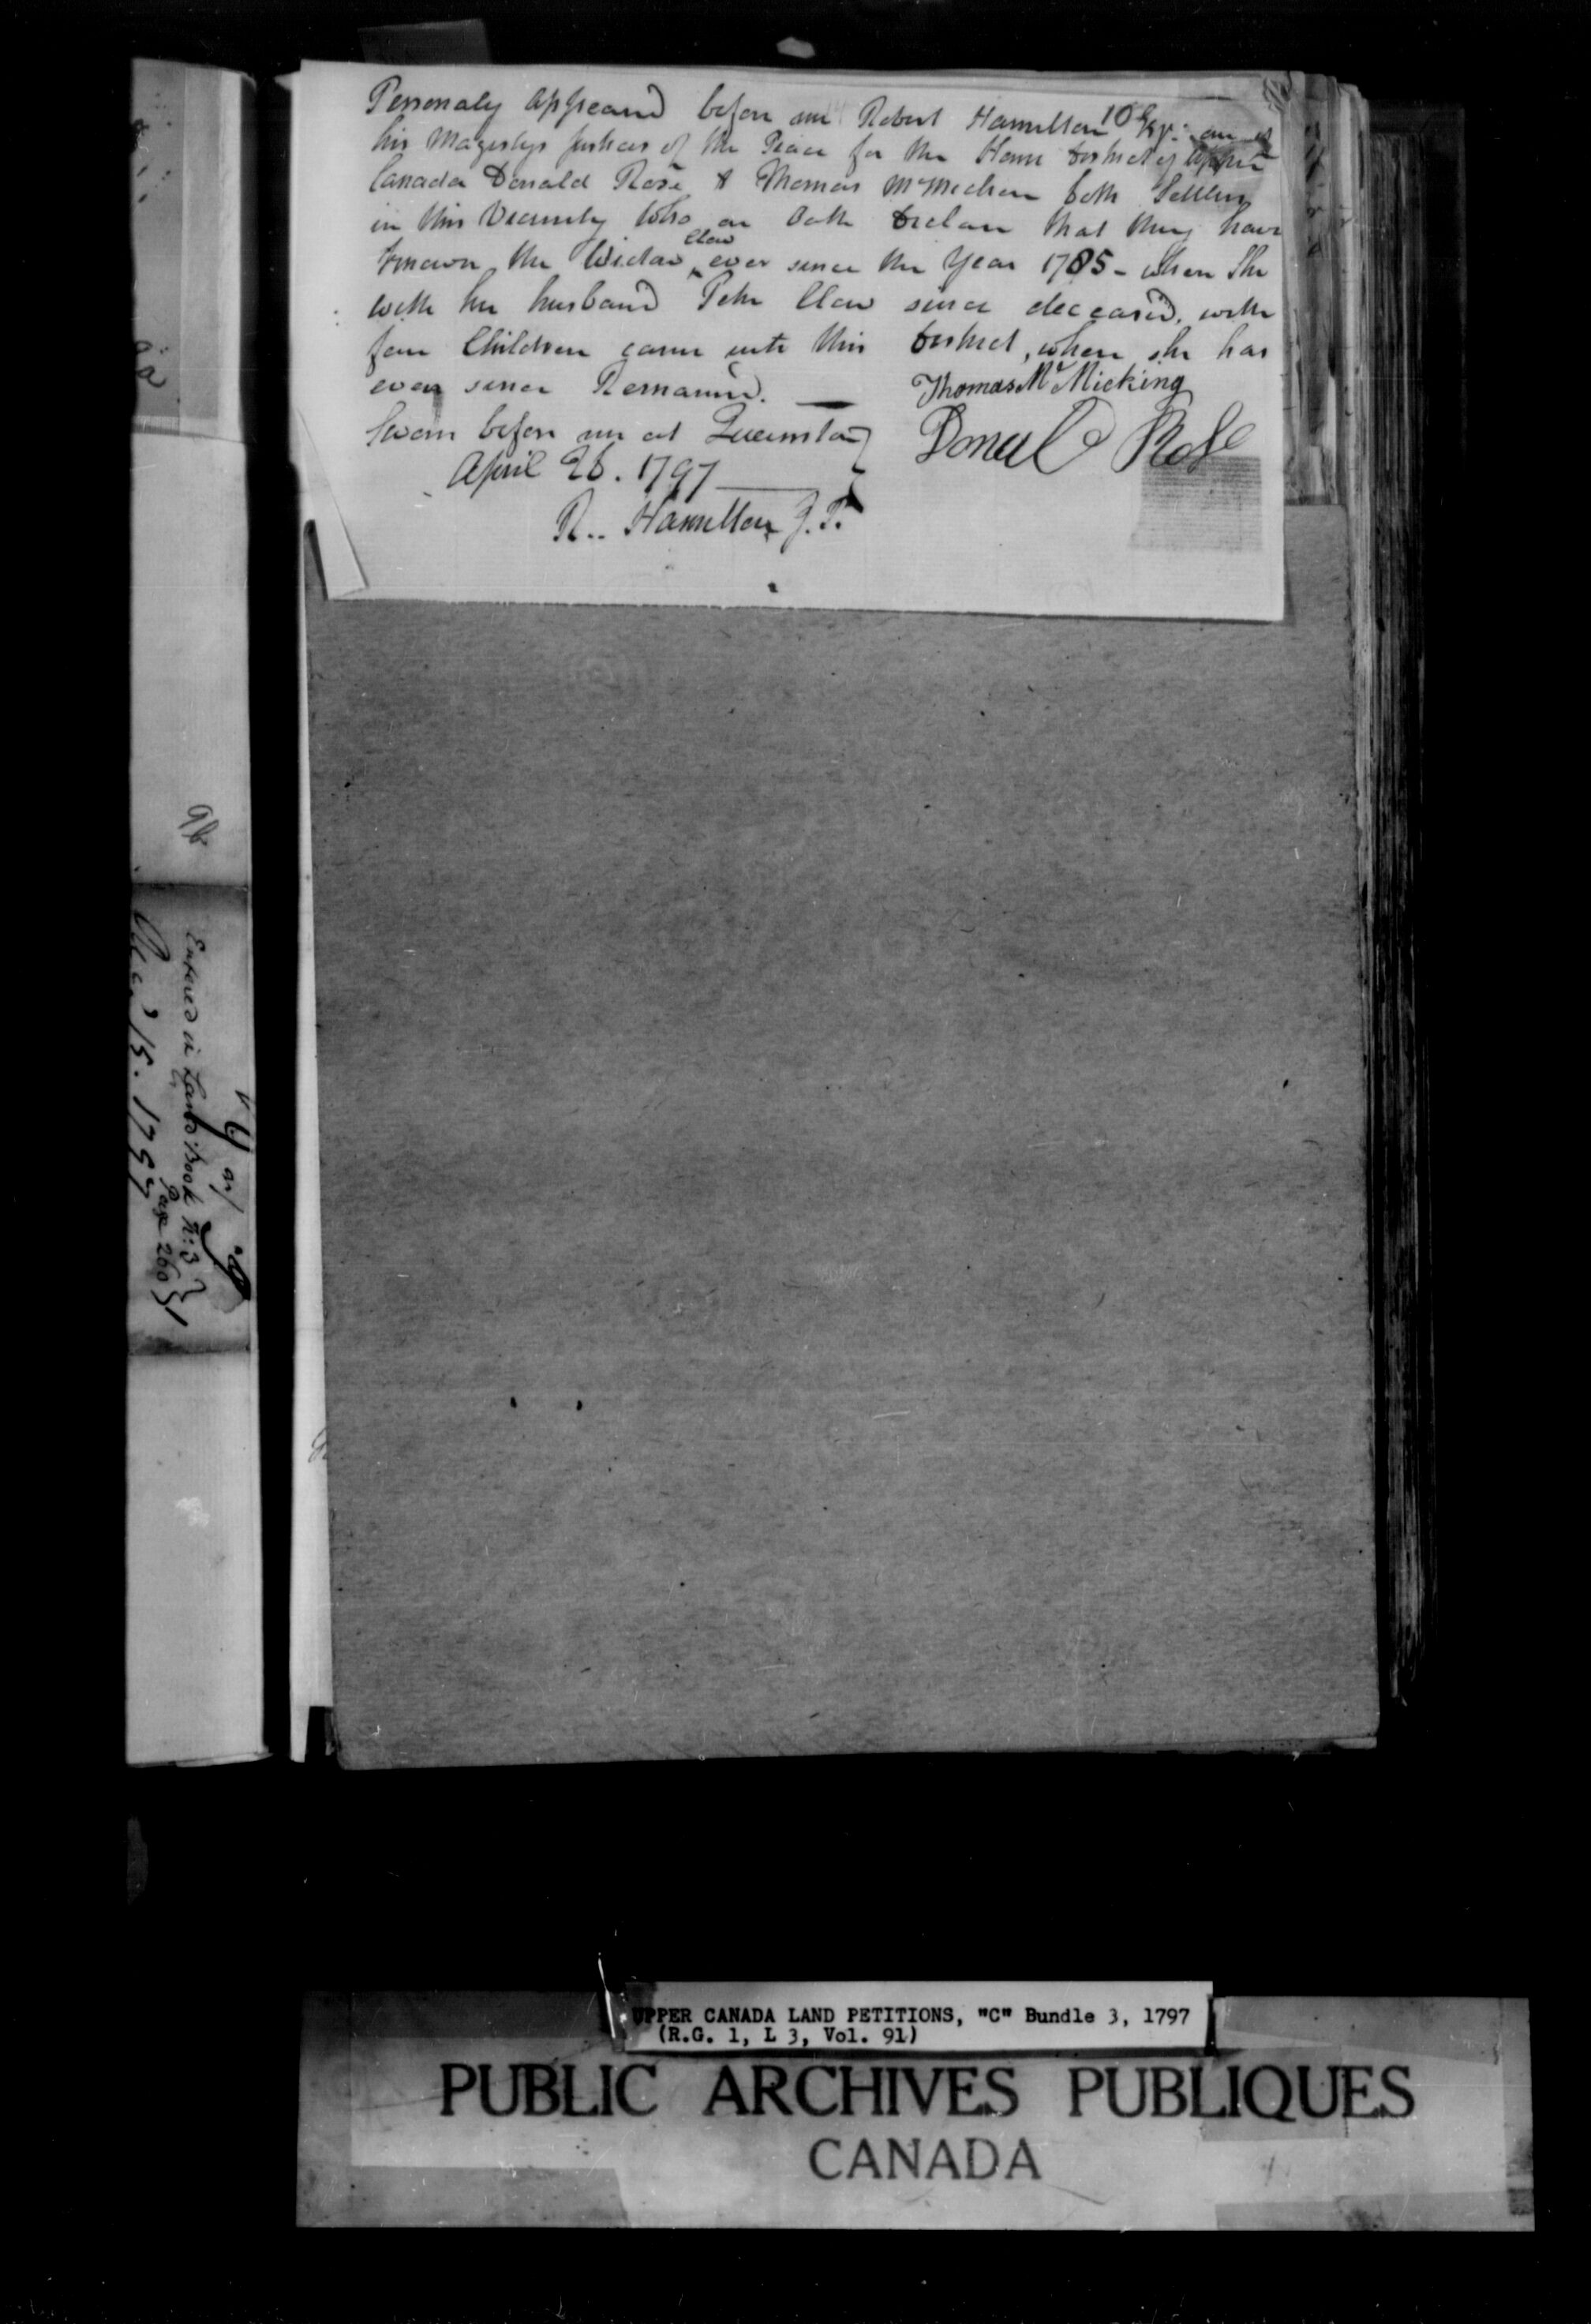 Personaly Appeared before me Robert Hamilton Esqr. one of
10
his Majestys Justices of the Peace for the Home District of Upper
Canada Donald Rose & Thomas McMicken both Settlers
in this Vicinity who on Oath Declare that they have
known the Widow Claw ever since the Year 1785 - when she
with her husband Peter Claw since deceased, with
four Children came into this District, where she has
ever since Remained. —
Thomas McMicking
Sworn before me at Queenston
Donald Rose
April 26. 1797
R.. Hamilton J. P.
9a
9b
Entered in Land Book N: 3
Page 260
15. 1797
UPPER CANADA LAND PETITIONS, "C" Bundle 3, 1797
(R.G. 1, L 3, Vol. 91)
PUBLIC ARCHIVES PUBLIQUES
CANADA